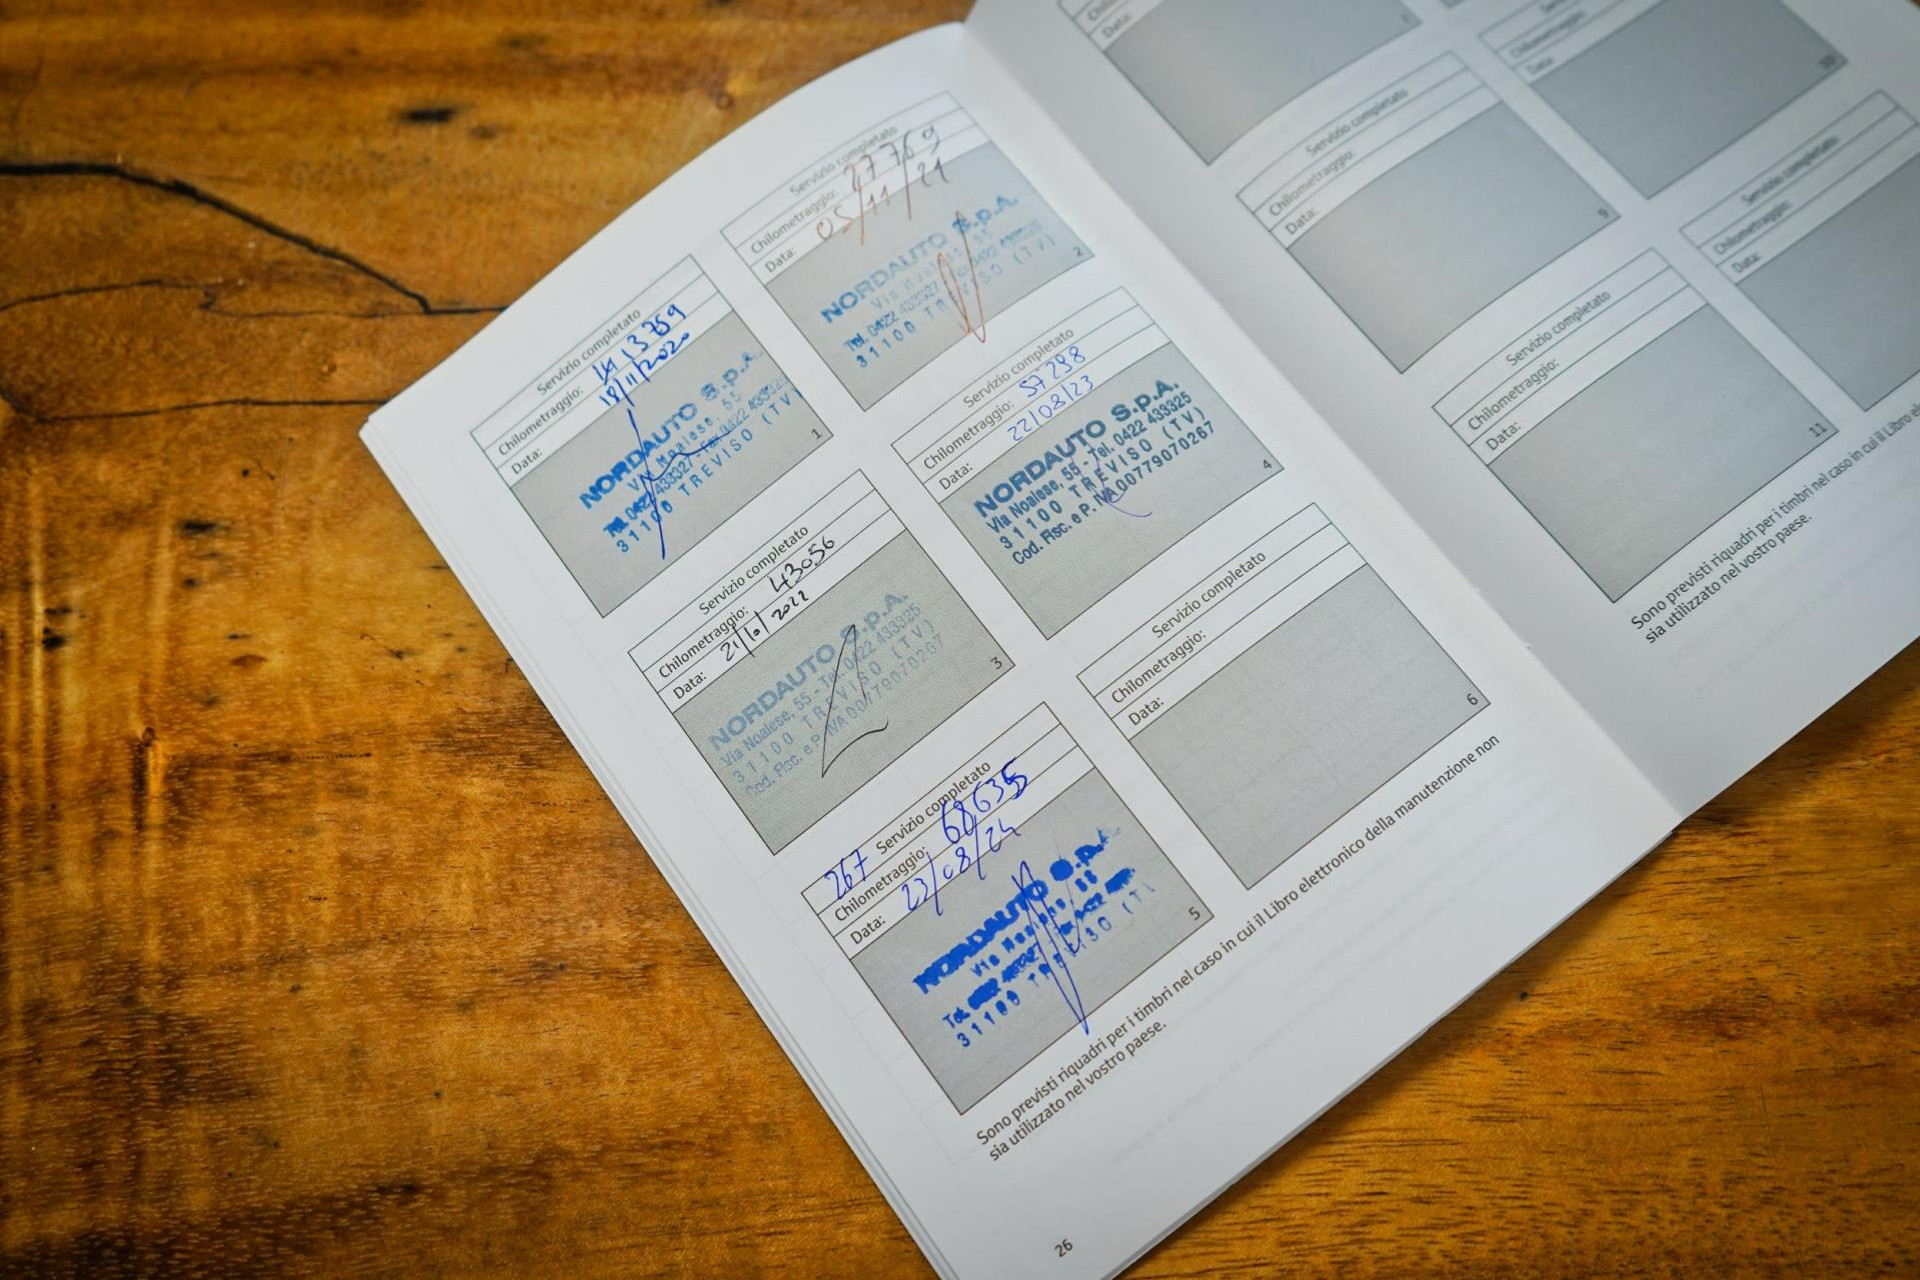 Servizio completato
Chilometraggio: 13759
Data: 18/11/2020
NORDAUTO S.p.A.
Via Noalese, 55
Tel. 0422 433327 - Fax 0422 433325
31100 TREVISO (TV)
1
Servizio completato
Chilometraggio: 27769
Data: 05/11/21
NORDAUTO S.p.A.
Via Noalese, 55
Tel. 0422 433327 0422 433325
31100 TREVISO (TV)
2
Servizio completato
Chilometraggio: 43056
Data: 21/10/2022
NORDAUTO S.p.A.
Via Noalese, 55 - Tel. 0422 433325
31100 TREVISO (TV)
Cod. Fisc. e P. IVA 00779070267
3
Servizio completato
Chilometraggio: 57298
Data: 22/08/23
NORDAUTO S.p.A.
Via Noalese, 55 - Tel. 0422 433325
31100 TREVISO (TV)
Cod. Fisc. e P. IVA 00779070267
4
267 Servizio completato
Chilometraggio: 68635
Data: 23/08/24
NORDAUTO S.p.A.
Via
Tel. 0422
31100 (T
5
Servizio completato
Chilometraggio:
Data:
6
Sono previsti riquadri per i timbri nel caso in cui il Libro elettronico della manutenzione non
sia utilizzato nel vostro paese.
26
Data:
7
Chilometraggio:
Data:
10
Servizio completato
Chilometraggio:
Data:
9
Servizio completato
Chilometraggio:
Data:
Servizio completato
Chilometraggio:
Data:
11
Sono previsti riquadri per i timbri nel caso in cui il Libro
sia utilizzato nel vostro paese.